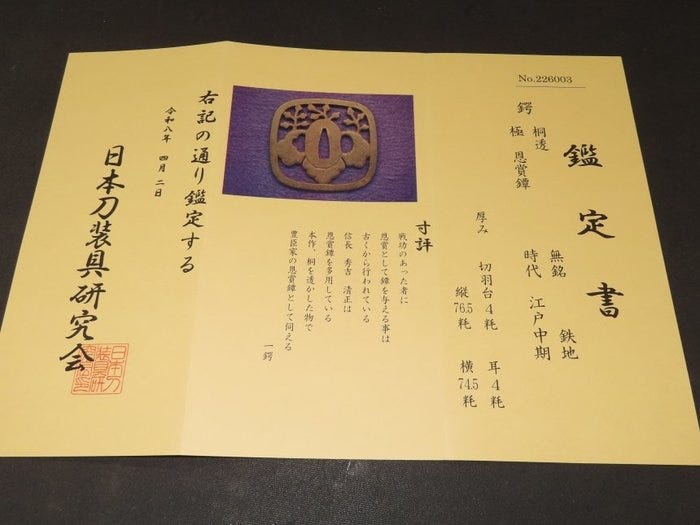 No.226003
鑑定書
鍔 桐透 無銘 鉄地
極 恩賞鐔 時代 江戸中期
厚み 切羽台 4粍 耳 4粍
縦 76.5粍 横 74.5粍
寸評
戦功のあった者に
恩賞として鐔を与える事は
古くから行われている
信長 秀吉 清正は
恩賞鐔を多用している
本作、桐を透かした物で
豊臣家の恩賞鐔として伺える
一鍔
右記の通り鑑定する
令和八年 四月 二日
日本刀装具研究会